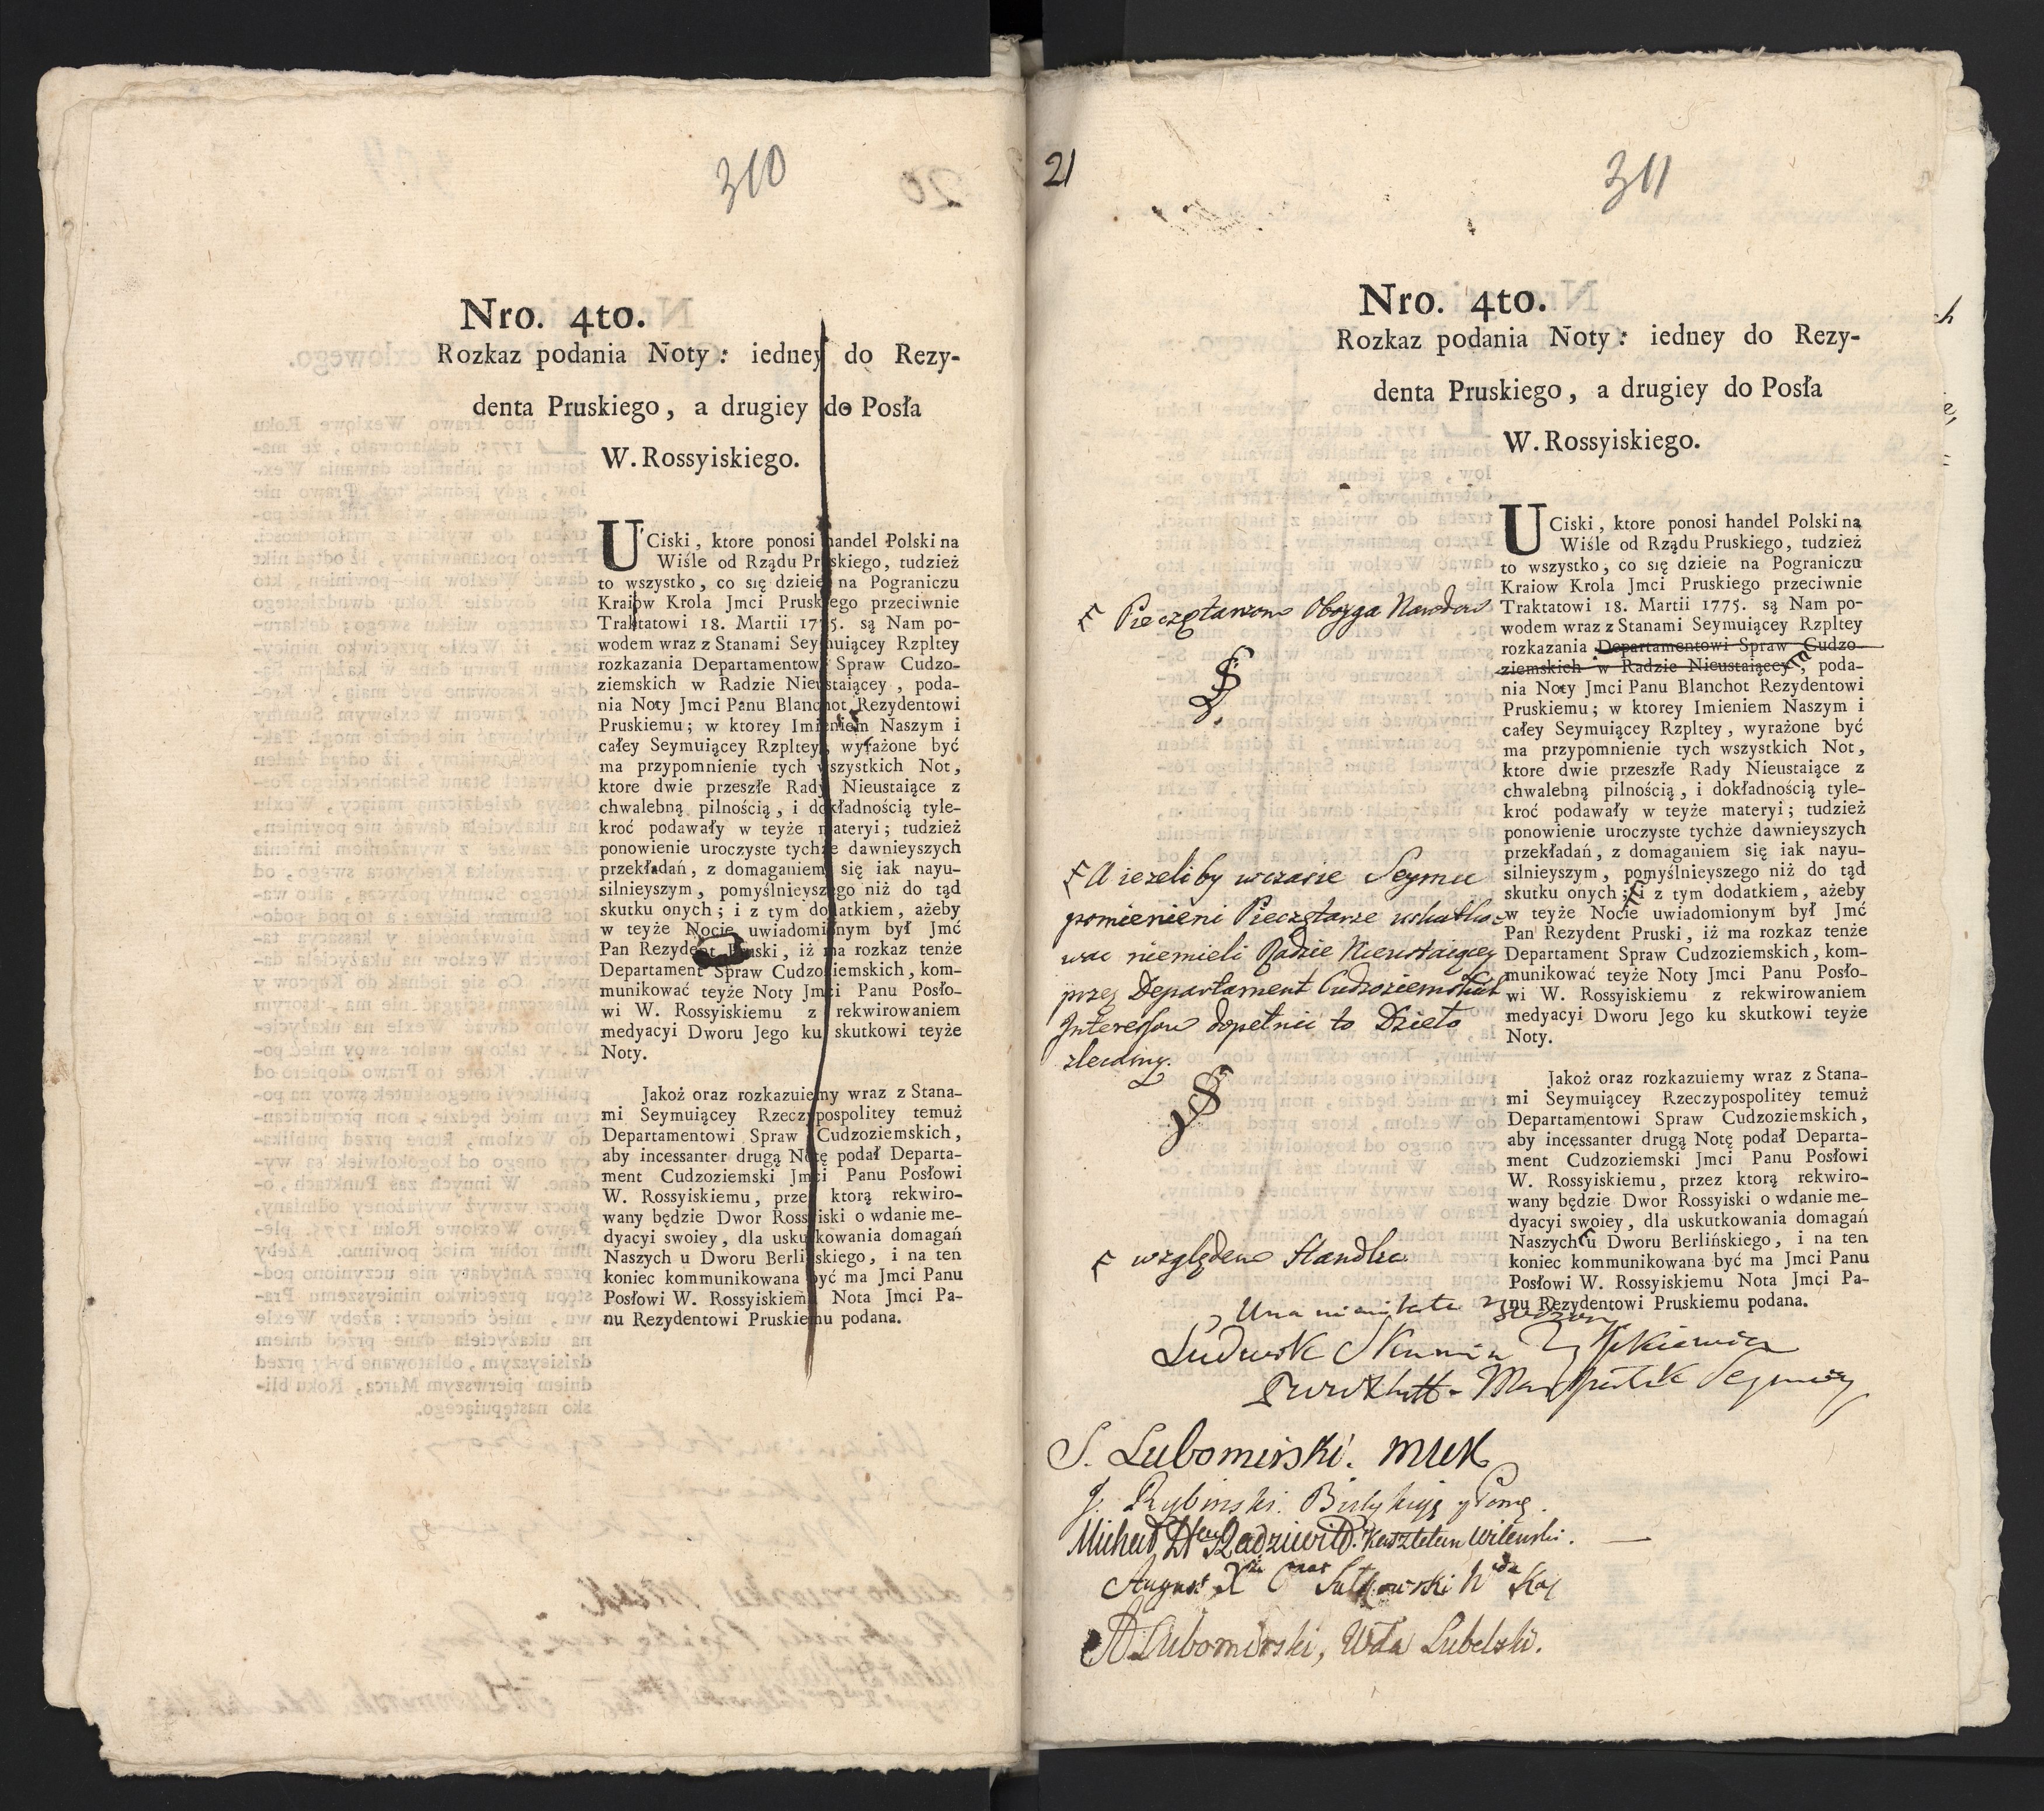 310
20
Nro. 4to.
Rozkaz podania Noty: iedney do Rezy-
denta Pruskiego, a drugiey do Posła
W. Rossyiskiego.
UCiski, ktore ponosi handel Polski na
Wiśle od Rządu Pruskiego, tudzież
to wszystko, co się dzieie na Pograniczu
Kraiow Krola Jmci Pruskiego przeciwnie
Traktatowi 18. Martii 1775. są Nam po-
wodem wraz z Stanami Seymuiącey Rzpltey
rozkazania Departamentowi Spraw Cudzo-
ziemskich w Radzie Nieustaiącey, poda-
nia Noty Jmci Panu Blanchot Rezydentowi
Pruskiemu; w ktorey Imieniem Naszym i
całey Seymuiącey Rzpltey, wyrażone być
ma przypomnienie tych wszystkich Not,
ktore dwie przeszłe Rady Nieustaiące z
chwalebną pilnością, i dokładnością tyle-
kroć podawały w teyże materyi; tudzież
ponowienie uroczyste tychże dawnieyszych
przekładań, z domaganiem się iak nayu-
silnieyszym, pomyślnieyszego niż do tąd
skutku onych; i z tym dodatkiem, ażeby
w teyże Nocie uwiadomionym był Jmć
Pan Rezydent Pruski, iż ma rozkaz tenże
Departament Spraw Cudzoziemskich, kom-
munikować teyże Noty Jmci Panu Posło-
wi W. Rossyiskiemu z rekwirowaniem
medyacyi Dworu Jego ku skutkowi teyże
Noty.
Jakoż oraz rozkazuiemy wraz z Stana-
mi Seymuiącey Rzeczypospolitey temuż
Departamentowi Spraw Cudzoziemskich,
aby incessanter drugą Notę podał Departa-
ment Cudzoziemski Jmci Panu Posłowi
W. Rossyiskiemu, przez ktorą rekwiro-
wany będzie Dwor Rossyiski o wdanie me-
dyacyi swoiey, dla uskutkowania domagań
Naszych u Dworu Berlińskiego, i na ten
koniec kommunikowana być ma Jmci Panu
Posłowi W. Rossyiskiemu Nota Jmci Pa-
nu Rezydentowi Pruskiemu podana.
21
311
Nro. 4to.
Rozkaz podania Noty: iedney do Rezy-
denta Pruskiego, a drugiey do Posła
W. Rossyiskiego.
UCiski, ktore ponosi handel Polski na
Wiśle od Rządu Pruskiego, tudzież
to wszystko, co się dzieie na Pograniczu
Kraiow Krola Jmci Pruskiego przeciwnie
Traktatowi 18. Martii 1775. są Nam po-
wodem wraz z Stanami Seymuiącey Rzpltey
rozkazania Departamentowi Spraw Cudzo-
ziemskich w Radzie Nieustaiącey, poda-
nia Noty Jmci Panu Blanchot Rezydentowi
Pruskiemu; w ktorey Imieniem Naszym i
całey Seymuiącey Rzpltey, wyrażone być
ma przypomnienie tych wszystkich Not,
ktore dwie przeszłe Rady Nieustaiące z
chwalebną pilnością, i dokładnością tyle-
kroć podawały w teyże materyi; tudzież
ponowienie uroczyste tychże dawnieyszych
przekładań, z domaganiem się iak nayu-
silnieyszym, pomyślnieyszego niż do tąd
skutku onych; i z tym dodatkiem, ażeby
w teyże Nocie uwiadomionym był Jmć
Pan Rezydent Pruski, iż ma rozkaz tenże
Departament Spraw Cudzoziemskich, kom-
munikować teyże Noty Jmci Panu Posło-
wi W. Rossyiskiemu z rekwirowaniem
medyacyi Dworu Jego ku skutkowi teyże
Noty.
Jakoż oraz rozkazuiemy wraz z Stana-
mi Seymuiącey Rzeczypospolitey temuż
Departamentowi Spraw Cudzoziemskich,
aby incessanter drugą Notę podał Departa-
ment Cudzoziemski Jmci Panu Posłowi
W. Rossyiskiemu, przez ktorą rekwiro-
wany będzie Dwor Rossyiski o wdanie me-
dyacyi swoiey, dla uskutkowania domagań
Naszych u Dworu Berlińskiego, i na ten
koniec kommunikowana być ma Jmci Panu
Posłowi W. Rossyiskiemu Nota Jmci Pa-
nu Rezydentowi Pruskiemu podana.
Pieczętarzom Oboyga Narodow
A ieżeliby wczasie Seymu
pomienieni Pieczętarze uskutko-
wac niemieli Radzie Nieustaiącey
przez Departament Cudzoziemskich
Interessow dopełnic to Dzieło
zlecamy.
względem Handlu
Unanimitate zgodzony
Ludwik Skumin Tyszkiewicz
Marszałek Seymowy
S. Lubomirski. MWK
J. Rybinski. Bis Kuja y Pom.
Michał Radziwiłł. Kasztelan Wilenski.
August Xże Sułkowski Wda Kal
A Lubomirski, Wda Lubelski.